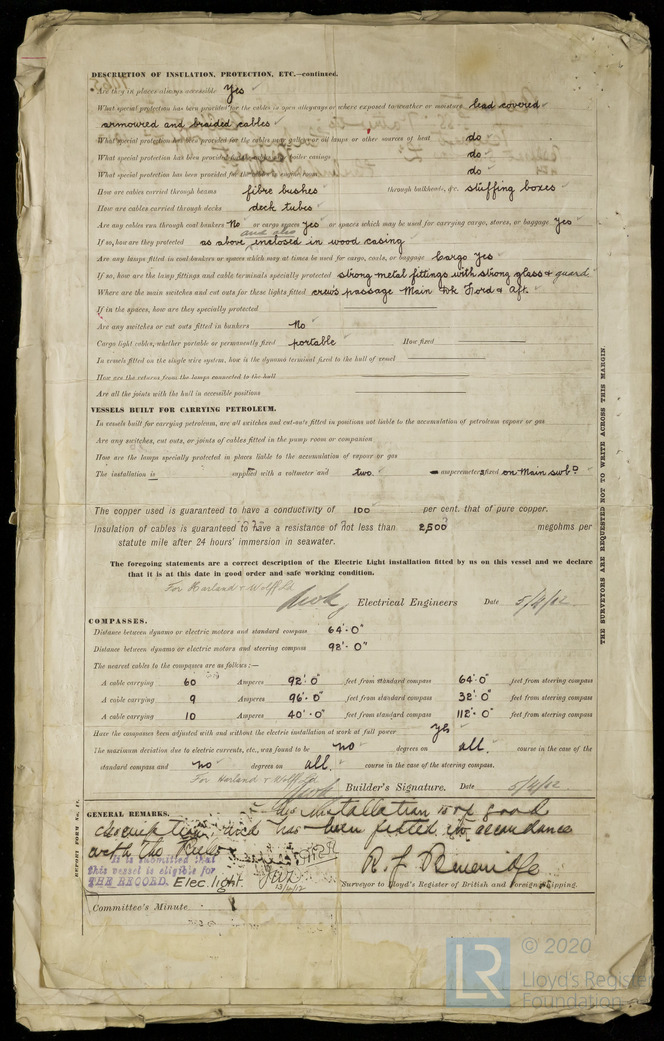 DESCRIPTION OF INSULATION, PROTECTION, ETC.—continued.
Are they in places always accessible Yes
What special protection has been provided for the cables in open alleyways or where exposed to weather or moisture lead covered
armoured and braided cables
What special protection has been provided for the cables near galleys or oil lamps or other sources of heat do
What special protection has been provided boiler casings do
What special protection has been provided do
How are cables carried through beams fibre bushes through bulkheads, &c. stuffing boxes
How are cables carried through decks deck tubes
Are any cables run through coal bunkers No or cargo spaces yes or spaces which may be used for carrying cargo, stores, or baggage yes
and also
If so, how are they protected as above enclosed in wood casing
Are any lamps fitted in coal bunkers or spaces which may at times be used for cargo, coals, or baggage Cargo yes
If so, how are the lamp fittings and cable terminals specially protected strong metal fittings with strong glass & guard
Where are the main switches and cut outs for these lights fitted crew's passage Main Dk Ford & Aft.
If in the spaces, how are they specially protected
Are any switches or cut outs fitted in bunkers No
Cargo light cables, whether portable or permanently fixed portable How fixed
In vessels fitted on the single wire system, how is the dynamo terminal fixed to the hull of vessel
How are the returns from the lamps connected to the hull
Are all the joints with the hull in accessible positions
VESSELS BUILT FOR CARRYING PETROLEUM.
In vessels built for carrying petroleum, are all switches and cut-outs fitted in positions not liable to the accumulation of petroleum vapour or gas
Are any switches, cut outs, or joints of cables fitted in the pump room or companion
How are the lamps specially protected in places liable to the accumulation of vapour or gas
The installation is supplied with a voltmeter and two amperemeters fixed on Main swbd
The copper used is guaranteed to have a conductivity of 100 per cent. that of pure copper.
Insulation of cables is guaranteed to have a resistance of not less than 2,500 megohms per
statute mile after 24 hours' immersion in seawater.
The foregoing statements are a correct description of the Electric Light installation fitted by us on this vessel and we declare
that it is at this date in good order and safe working condition.
For Harland & Wolff Ld
Electrical Engineers Date 5/4/12
COMPASSES.
Distance between dynamo or electric motors and standard compass 64'-0"
Distance between dynamo or electric motors and steering compass 92'-0"
The nearest cables to the compasses are as follows:—
A cable carrying 60 Amperes 92'-0" feet from standard compass 64'-0" feet from steering compass
A cable carrying 9 Amperes 96'-0" feet from standard compass 32'-0" feet from steering compass
A cable carrying 10 Amperes 40'-0" feet from standard compass 112'-0" feet from steering compass
Have the compasses been adjusted with and without the electric installation at work at full power yes
The maximum deviation due to electric currents, etc., was found to be no degrees on all. course in the case of the
standard compass and no degrees on all. course in the case of the steering compass.
For Harland & Wolff Ld
Builder's Signature. Date 5/4/12
GENERAL REMARKS. installation is of good
description, and has been fitted in accordance
with the Rules
It is submitted that
this vessel is eligible for
THE RECORD. Elec. light.
13/4/12
Surveyor to Lloyd's Register of British and Foreign Shipping.
Committee's Minute.
THE SURVEYORS ARE REQUESTED NOT TO WRITE ACROSS THIS MARGIN.
LR
© 2020
Lloyd's Register
Foundation